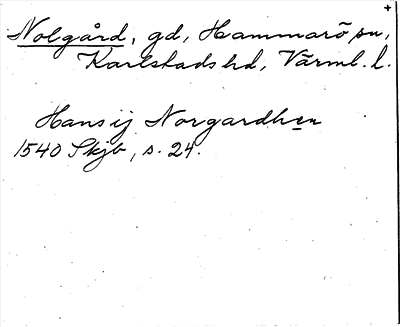 +
Nolgård, gd, Hammarö sn,
Karlstads hd, Värml. l.
Hans ij Norgardhen
1540 Skjb, s. 24.